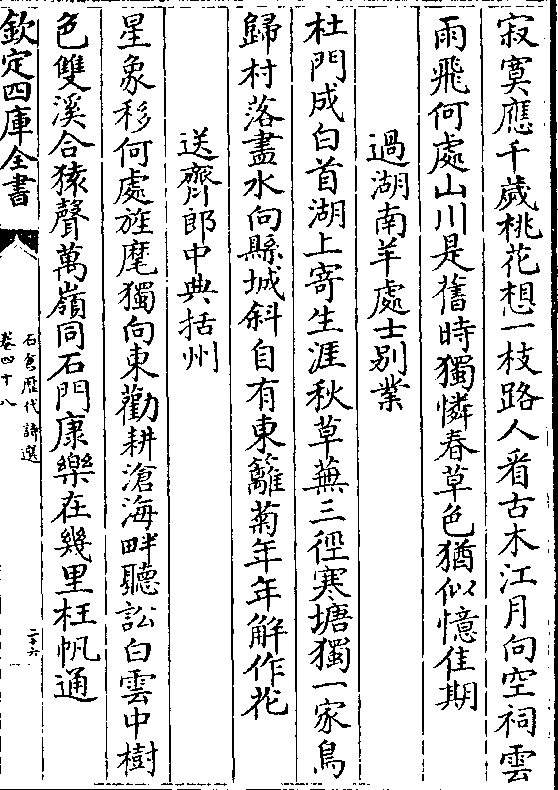 寂寞應千歲桃花想一枝路人看古木江月向空祠雲
雨飛何處山川是舊時獨憐春草色猶似憶佳期
過湖南羊處士别業
杜門成白首湖上寄生涯秋草蕪三徑寒塘獨一家鳥
歸村落盡水向縣城斜自有東籬菊年年解作花
送齊郎中典括州
星象移何處旌麾獨向東勸耕滄海畔聽訟白雲中樹
色雙溪合猿聲萬嶺同石門康樂在幾里枉帆通
欽定四庫全書
石倉歷代詩選
卷四十八
二十六